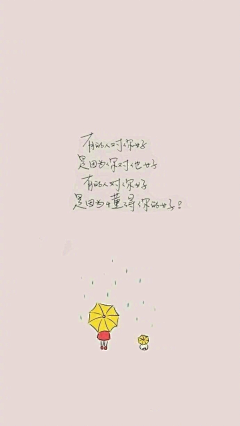 有的人对你好
是因为你对他好
有的人对你好
是因为懂得你的好。